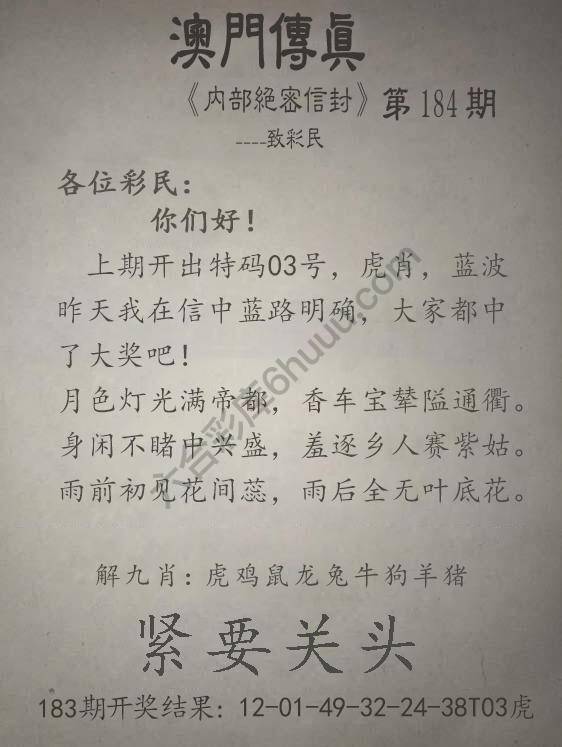 澳門傳眞
《内部絕密信封》第184期
----致彩民
各位彩民：
你们好！
上期开出特码03号，虎肖，蓝波
昨天我在信中蓝路明确，大家都中
了大奖吧！
月色灯光满帝都，香车宝辇隘通衢。
身闲不睹中兴盛，羞逐乡人赛紫姑。
雨前初见花间蕊，雨后全无叶底花。
解九肖：虎鸡鼠龙兔牛狗羊猪
紧要关头
183期开奖结果：12-01-49-32-24-38T03虎
六合彩库6huuu.com